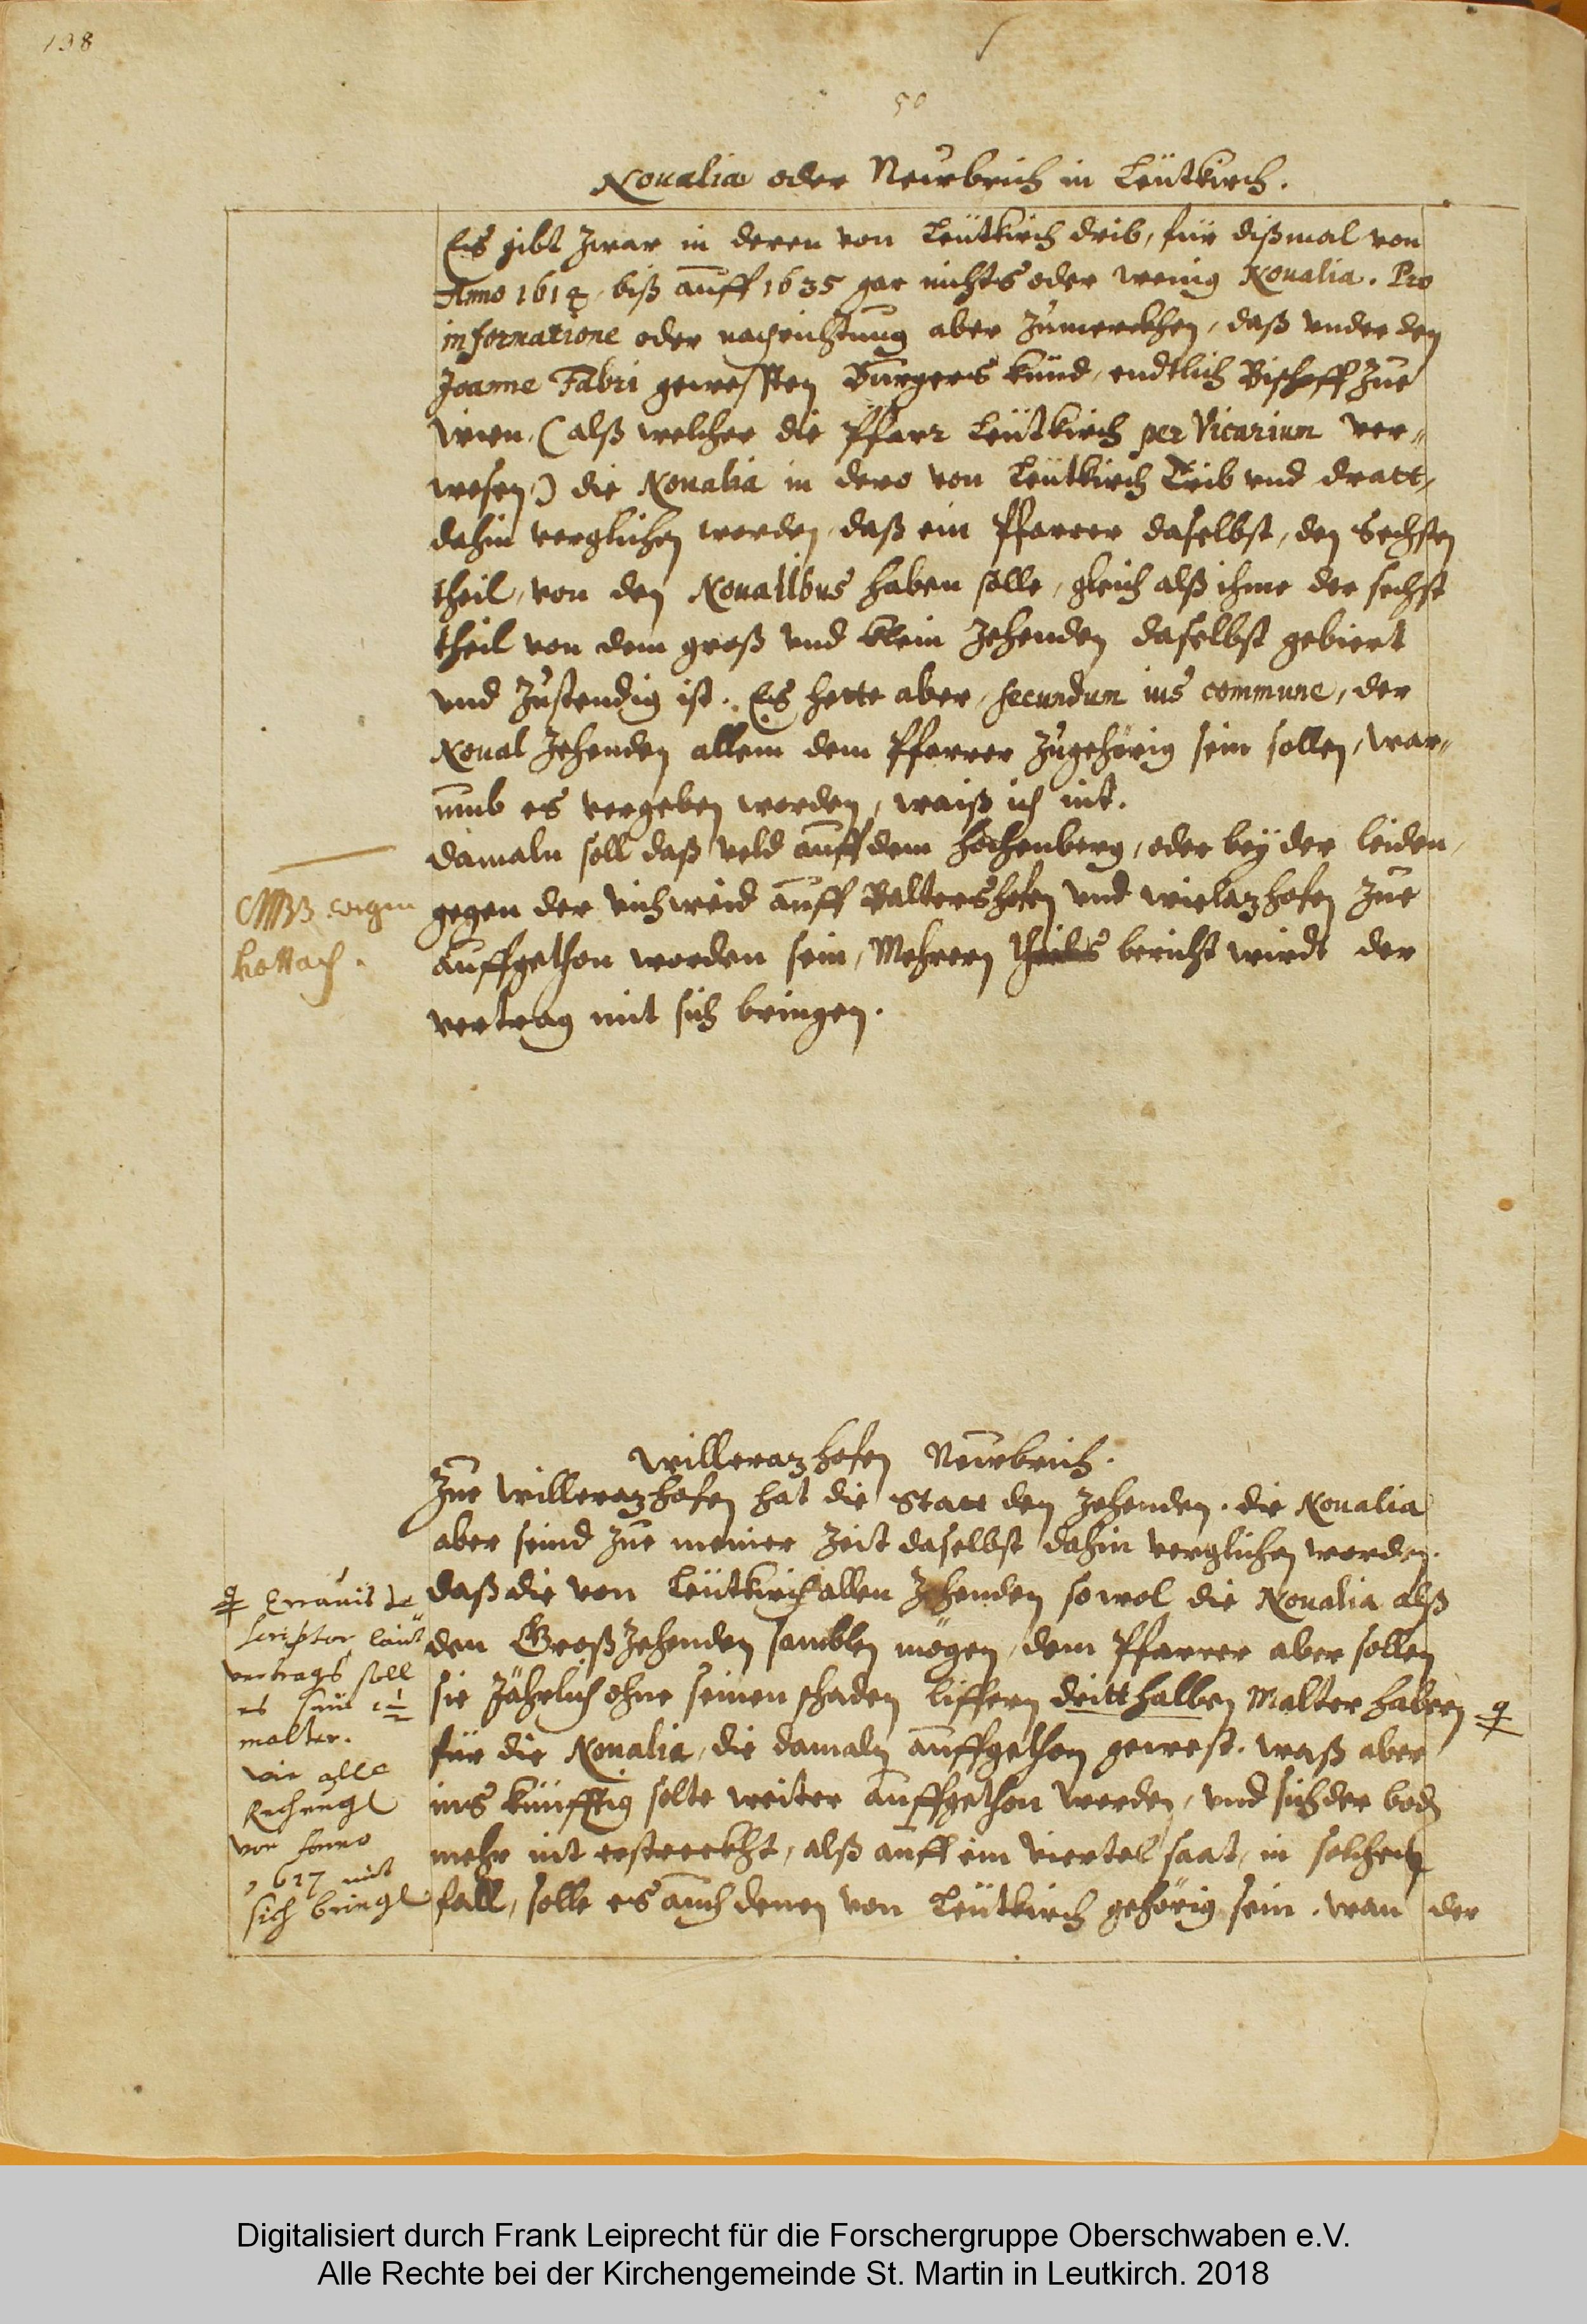 198
50
Noualia oder Neurbrich in Leütkirch.
Es gibt zwar in deren von Leütkirch drib, für dißmal von
Anno 1614, biß auff 1635 gar nichts oder wenig Noualia. Pro
informatione oder nachrichtung aber zumerckhen, daß vnder den
Joanne Fabri gewesten Burgers kind, endtlich Bischoff zue
Wien, (alß welcher die Pfarr Leütkirch per Vicarium ver„
wesen,) die Noualia in dero von Leütkirch Trib vnd dratt,
dahin verglichen worden, daß ein Pfarrer daselbst, den Sechsten
theil, von den Noualibus haben solle, gleich alß ihme der sechst
theil von dem groß vnd klein Zehenden daselbst gebiert
vnd zustendig ist. Es hette aber, secundum ius commune, der
Noual Zehenden allein dem Pfarrer zugehörig sein sollen, war„
umb es vergeben worden, waiß ich nit.
Damaln soll daß veld auff dem hochenberg, oder bey der leiden,
gegen der vichweid auff Baltershofen vnd wielazhofen zue
auffgethon worden sein, Mehrern theils bericht wirdt der
vertrag mit sich bringen.
wegen
Willerazhofen Neurbrich.
Zue Willerazhofen hat die Statt den Zehenden. die Noualia
aber seind zue meiner Zeit daselbst dahin verglichen worden.
daß die von Leütkirch allen Zehenden sowol die Noualia alß
den Groß Zehenden samblen mögen, dem Pfarrer aber sollen
sie Jährlich ohne seinen schaden liffern dritthalben Malter habern
für die Noualia, die damaln auffgethon gewest. waß aber
ins künfftig solte weiter auffgethon werden, vnd sich der bod
mehr nit erstreckht, alß auff ein viertel saat, in solchem
fall, solle es auch denen von Leütkirch gehörig sein. wan der
Errauit
scriptor laut
vertrags soll
es sein 1/2
malter.
wie alle
von Anno
1627 mit
sich bringt
Digitalisiert durch Frank Leiprecht für die Forschergruppe Oberschwaben e.V.
Alle Rechte bei der Kirchengemeinde St. Martin in Leutkirch. 2018